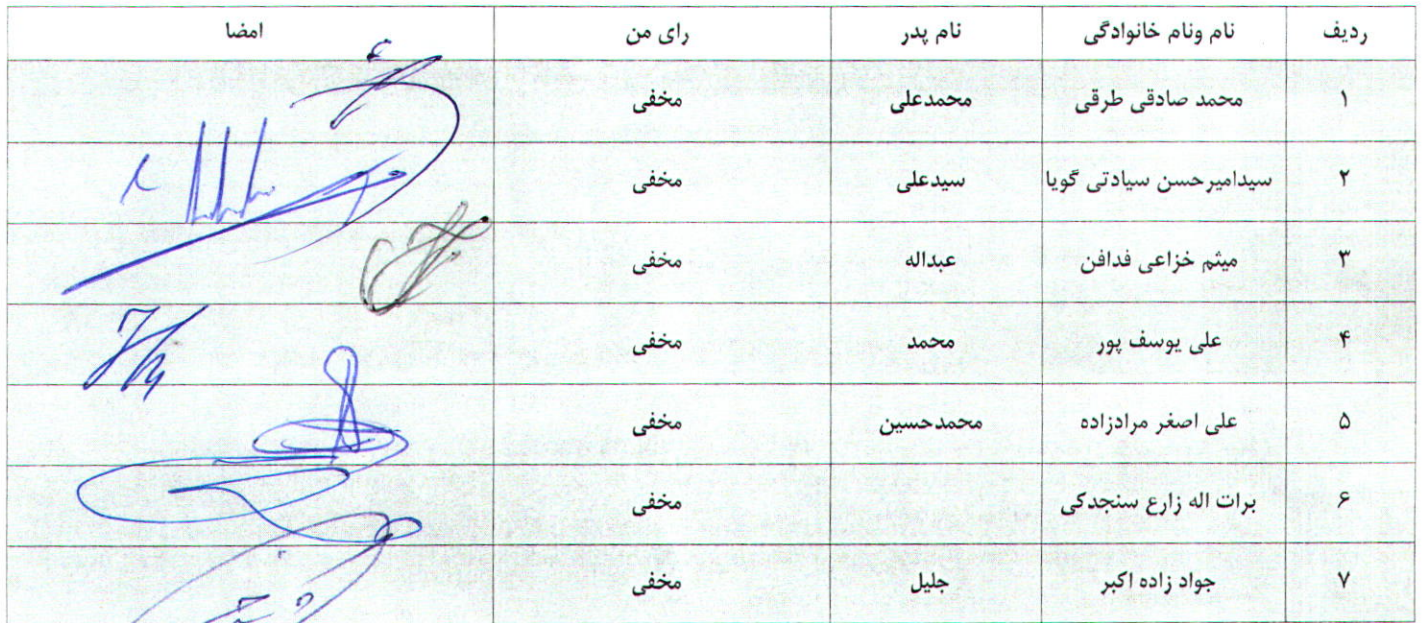 ردیف نام ونام خانوادگی نام پدر رای من امضا
۱ محمد صادقی طرقی محمدعلی مخفی
۲ سیدامیرحسن سیادتی گویا سیدعلی مخفی
۳ میثم خزاعی فدافن عبداله مخفی
۴ علی یوسف پور محمد مخفی
۵ علی اصغر مرادزاده محمدحسین مخفی
۶ برات اله زارع سنجدکی مخفی
۷ جواد زاده اکبر جلیل مخفی